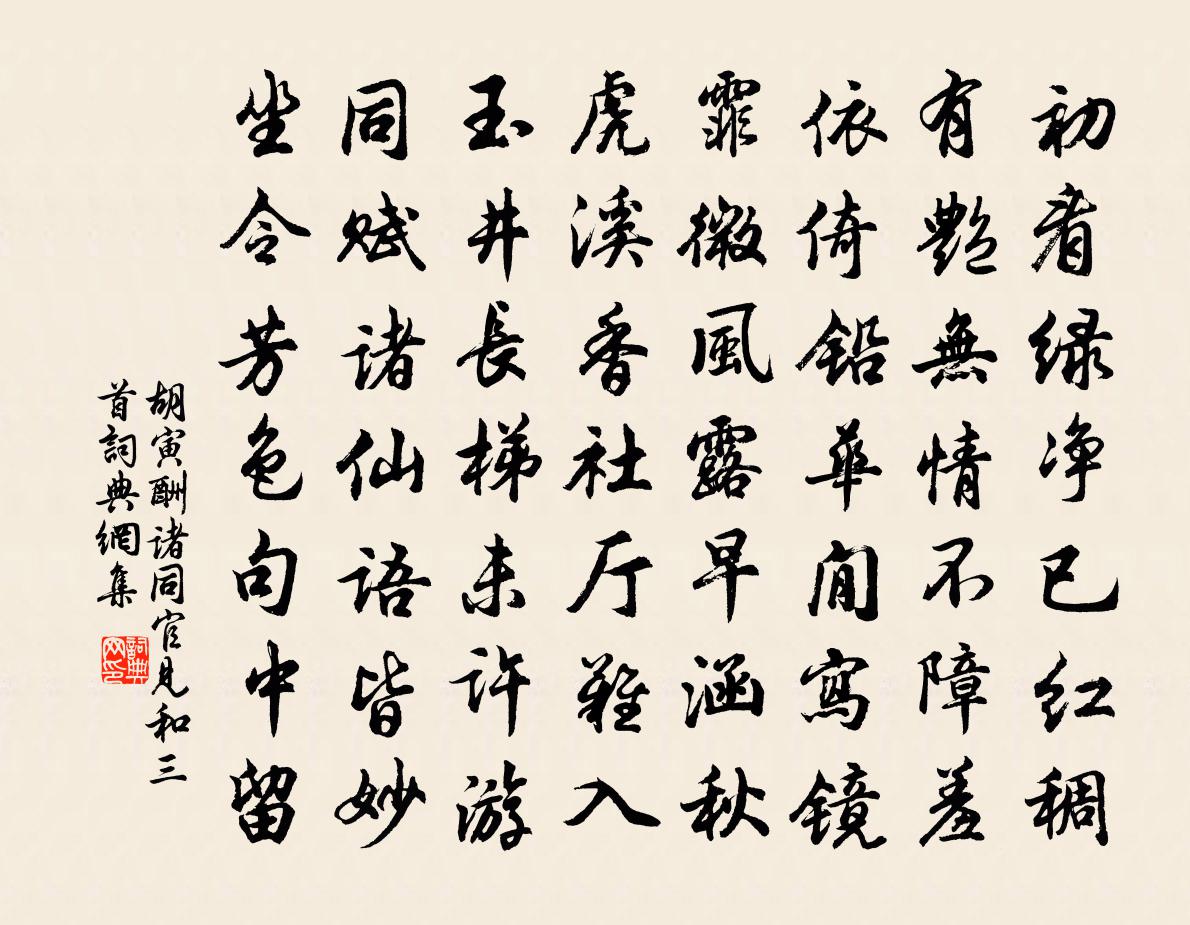 初看绿净已红稠
有艷無情不障羞
依倚铅華閒寫镜
霏微風露早涵秋
虎溪香社厅難入
玉井長梯未许游
同赋诸仙语皆妙
坐令芳色句中留
胡寅酬诸同官見和三
首詞典網集
詞典
网印